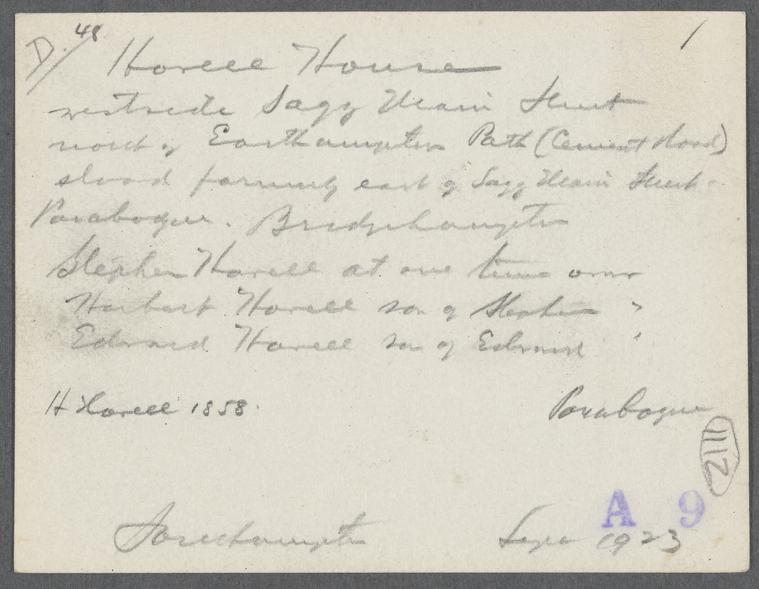 D. 48 Howell House 1
westside Sagg Main Street
north of Easthampton Path (Cement Road)
stood formerly east of Sagg Main Street
Poxabogue. Bridgehampton
Stephen Howell at one time owner
Herbert Howell son of Stephen "
Edward Howell son of Edward "
H Howell 1858. Poxabogue
1112
A 9
Southampton Sept 1923